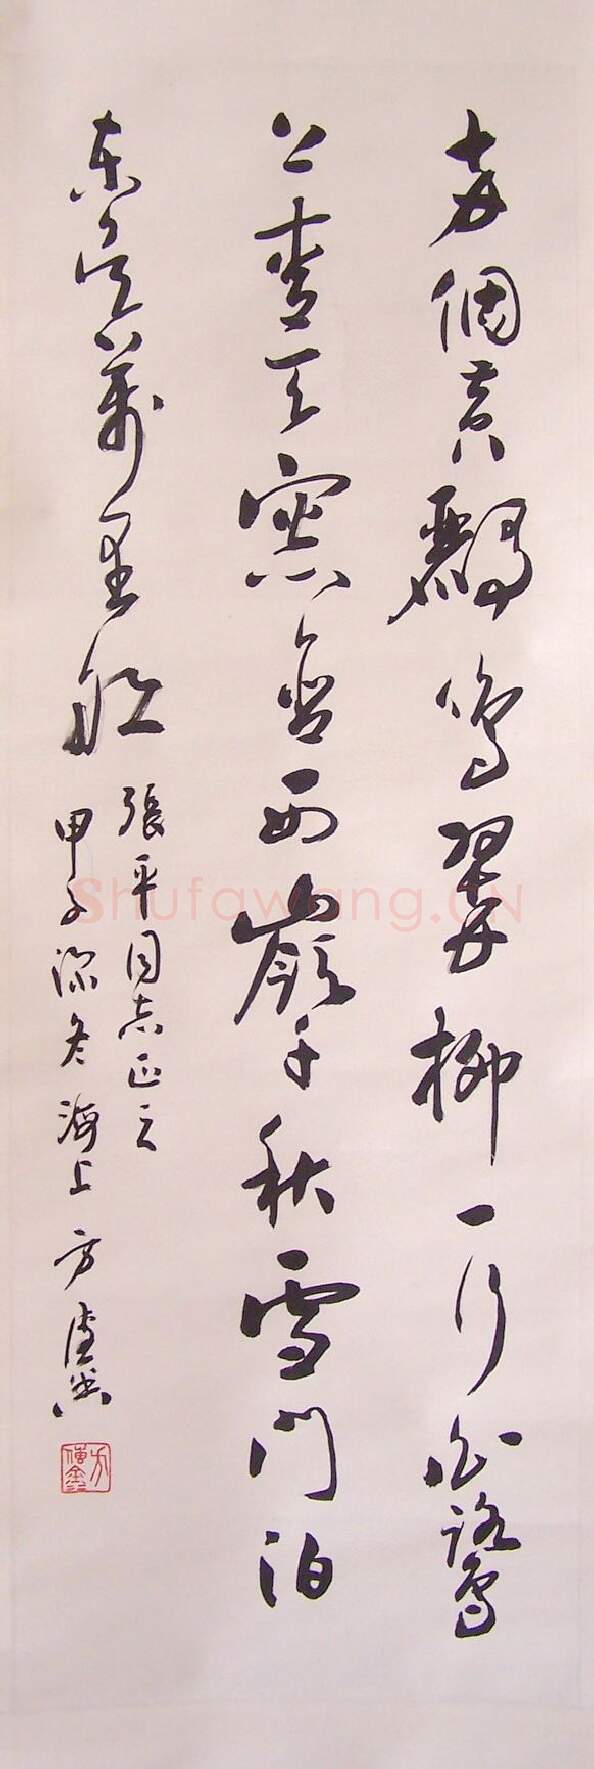 两個黄鸝鳴翠柳一行白鷺
上青天窗含西嶺千秋雪門泊
东吴萬里船
張平同志正之
甲子深冬海上方传鑫
方传鑫
Shufawang.CN